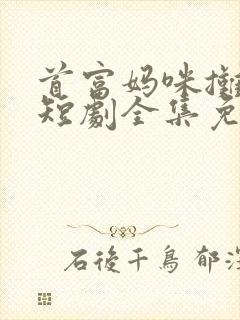 首富妈咪
短劇全集免
石後千鳥 郁